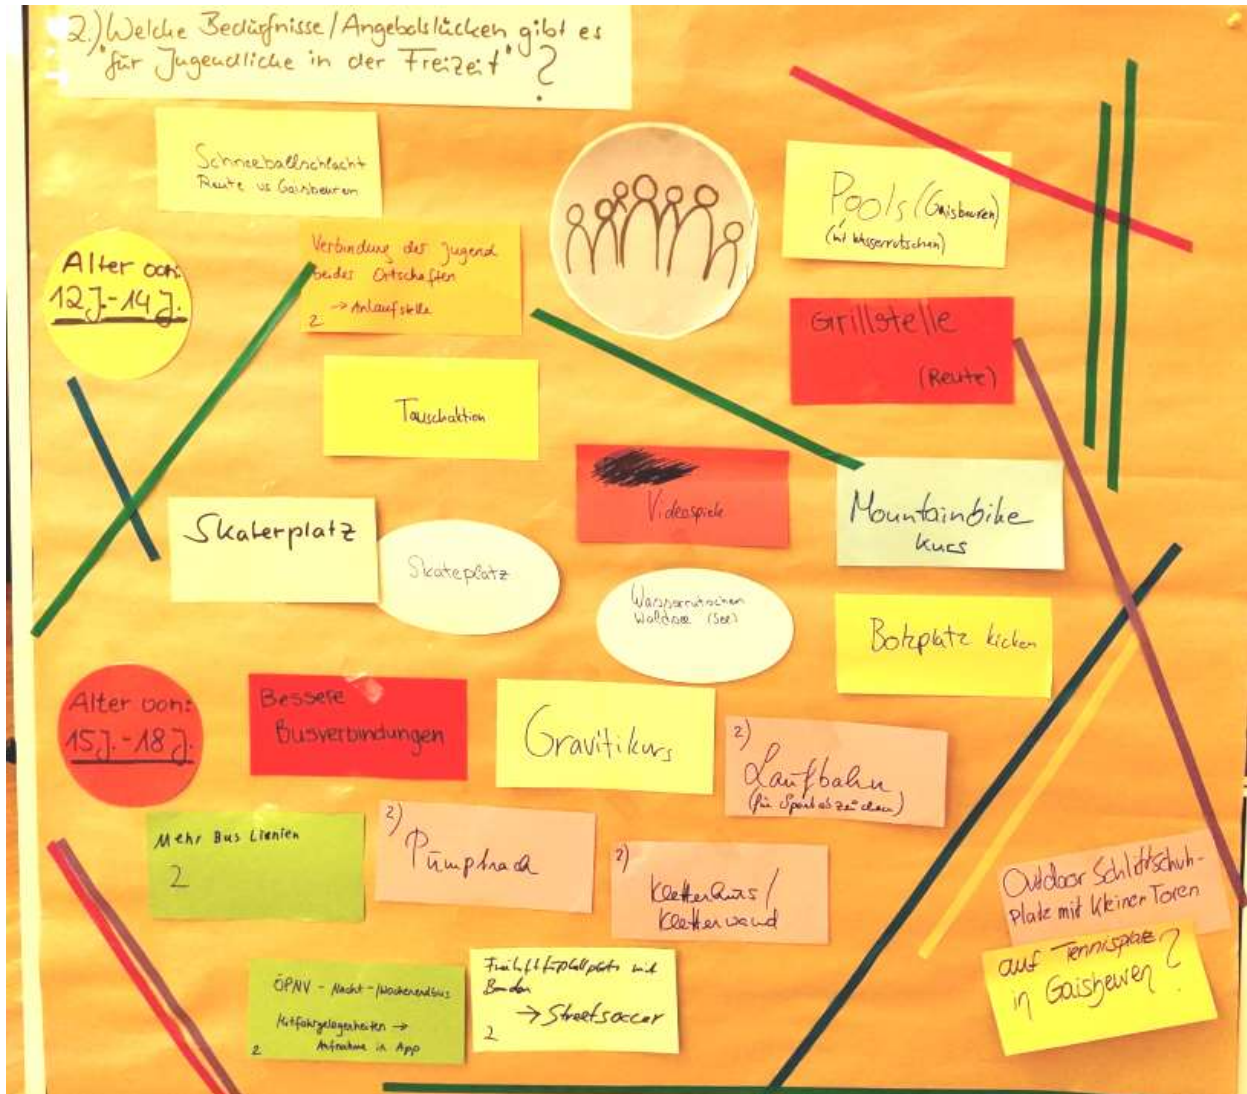 2.) Welche Bedürfnisse/Angebotslücken gibt es
"für Jugendliche in der Freizeit"?
Schneeballschlacht
Reute vs Gaisbeuren
Pools (Gaisbeuren)
(mit Wasserrutschen)
Alter von:
12 J.-14 J.
Verbindung der Jugend
beider Ortschaften
→ Anlaufstelle
2
Grillstelle
(Reute)
Tauschaktion
Videospiele
Mountainbike
kurs
Skaterplatz
Skateplatz
Wasserrutschen
Waldsee (See)
Bolzplatz kicken
Alter von:
15 J.-18 J.
Bessere
Busverbindungen
Gravitikurs
2)
Laufbahn
(für Sportabzeichen)
Mehr Bus Lienien
2
2)
Pumptrack
2)
Kletterkurs/
Kletterwand
Outdoor Schlittschuh-
platz mit kleiner Toren
auf Tennisplatz
in Gaisbeuren?
ÖPNV - Nacht-/Wochenendbus
Mitfahrgelegenheiten →
Aufnahme in App
2
Freiluftfußballplatz mit
Banden
→ Streetsoccer
2